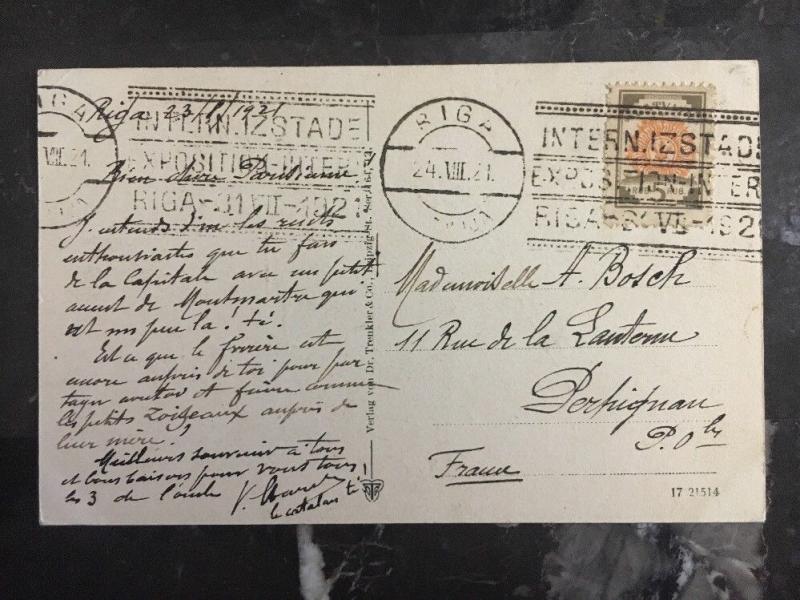 Riga 23/8/1921
RIGA
VIII.21.
INTERN.IZSTADE
EXPOSITION-INTER
RIGA-31 VII-192
RIGA
24.VIII.21.
INTERN.IZSTADE
EXPOSITION-INTER
RIGA-31 VII-192
Bien chère
J'entends d'ici les récits
enthousiastes que tu fais
de la Capitale avec un petit
accent de Montmartre qui
est un peu là! té.
Est ce que le frérire est
encore auprès de toi pour par
et faire comme
les petits zoiseaux auprès de
leur mère?
Meilleurs souvenir à tous
et bons baisers pour vous tous
les 3 de l'oncle V.
le catalan té!
Verlag von Dr. Trenkler & Co., Leipzig-St.
Mademoiselle A. Bosch
11 Rue de la Lanterne
Perpignan
P. Oles
France
17 21514